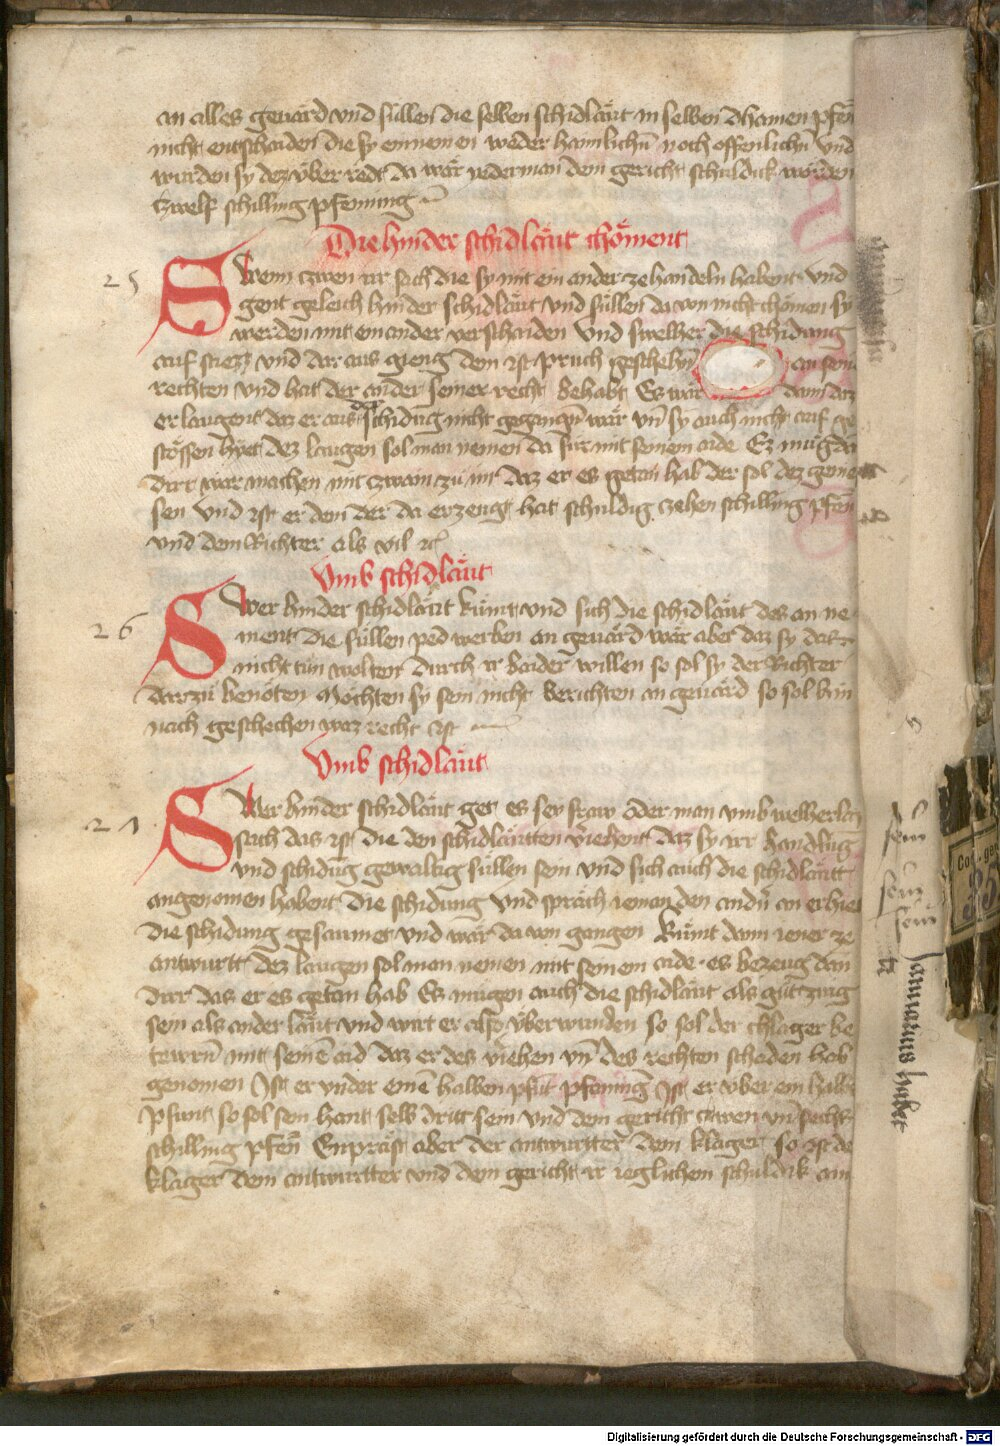 an alles geuärd vnd süllen die selben schidläut in selben dhainen pfen
nicht entschaiden die sy ein nemen weder haimlichn noch offenlichn vnd
wurden sy dez über redt da wär yederman dem gericht schuldick worden
czwelf schilling pfenning
Die hinder schidläut chöment
25 Swenn czwen irr sach die sy mit ein ander ze handeln habent vnd
gent geleich hinder schidläut vnd süllen da von nicht chömen sy
werden mit ein ander verschaiden vnd swelher die schidung
auf stiezz vnd dar aus gieng dem ist pruch geschehn an sein
rechten vnd hat der ander seiner recht behabt Es wär dann daz
er laugent daz er aus der schidug nicht gegangn wär vn sy auch nicht auf ge
stössen hyet dez laugen sol man nemen da für mit seinem aide Ez müg dan
dirr wär machen mit czwain zü im daz er es getan hab der sol dez geniez
sen vnd ist er dem der da erzeugt hat schuldig czehen schilling pfen
vnd dem Richter als vil
Vmb schidläut
26 Swer hinder schidläut kümt vnd sich die schidläut des an ne
ment die süllen ped werben an geuärd wär aber daz sy daz
nicht tün wolten durch ir baider willen so sol sy der Richter
darzü benöten Möchten sy sein nicht berichten an geuärd so sol hin
nach geschechen waz recht ist
Vmb schidläut
27 Swer hinder schidläut get es sey fraw oder man vmb welherlay
sach das ist die den schidläutten veriehent daz sy irr handlug
vnd schidug gewaltig süllen sein vnd sich auch die schidläutt
angenomen habent die schidung vnd spräch yeman den andn an er hiet
die schidung gesaumet vnd wär da von gangen kümt dann iener ze
antwurtt dez laugen sol man nemen mit seinem aide es bezeug dan
dirr das er es getan hab Es mügen auch die schidläut als güt zeug
sein als ander läut vnd wirt er also überwunden so sol der chlager be
tewrn mit seinē aid daz er des veriehen vn des rechten schaden hab
genomen Ist er vnder einē halben pfūt pfening Ist er über ein halbs
pfunt so sol sein hant selb dritt sein vnd dem gericht czwen vn sechczk
schilling pfen Enpräst aber der antwurtter dem klager so ist der
klager dem antwurtter vnd dem gericht ir yeglichem schuldik ain
sein
sein
sein
Januarius habet
Cod. ger
35
Digitalisierung gefördert durch die Deutsche Forschungsgemeinschaft - DFG